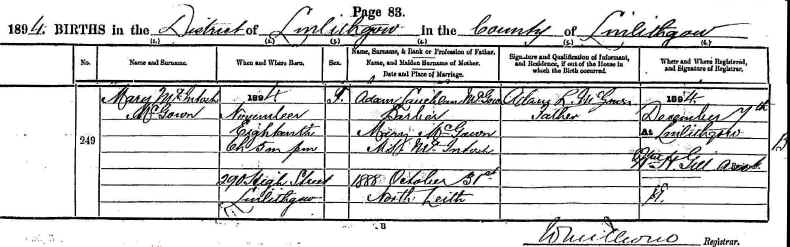 Page 83.
1894. BIRTHS in the District of Linlithgow in the County of Linlithgow
(1.) (2.) (3.) (4.) (5.) (6.)
No. Name and Surname. When and Where Born. Sex. Name, Surname, & Rank or Profession of Father. Name, and Maiden Surname of Mother. Date and Place of Marriage. Signature and Qualification of Informant, and Residence, if out of the House in which the Birth occurred. When and Where Registered, and Signature of Registrar.
249
Mary McIntosh
McGown
1894
November
Eighteenth
5 pm
290 High Street
Linlithgow
F.
Adam McGown
Barber
Mary McGown
M.S. McIntosh
1888 October 31st
North Leith
Adam L. McGown
Father
1894
December 7th
At Linlithgow
Wm H. Gill
Registrar.